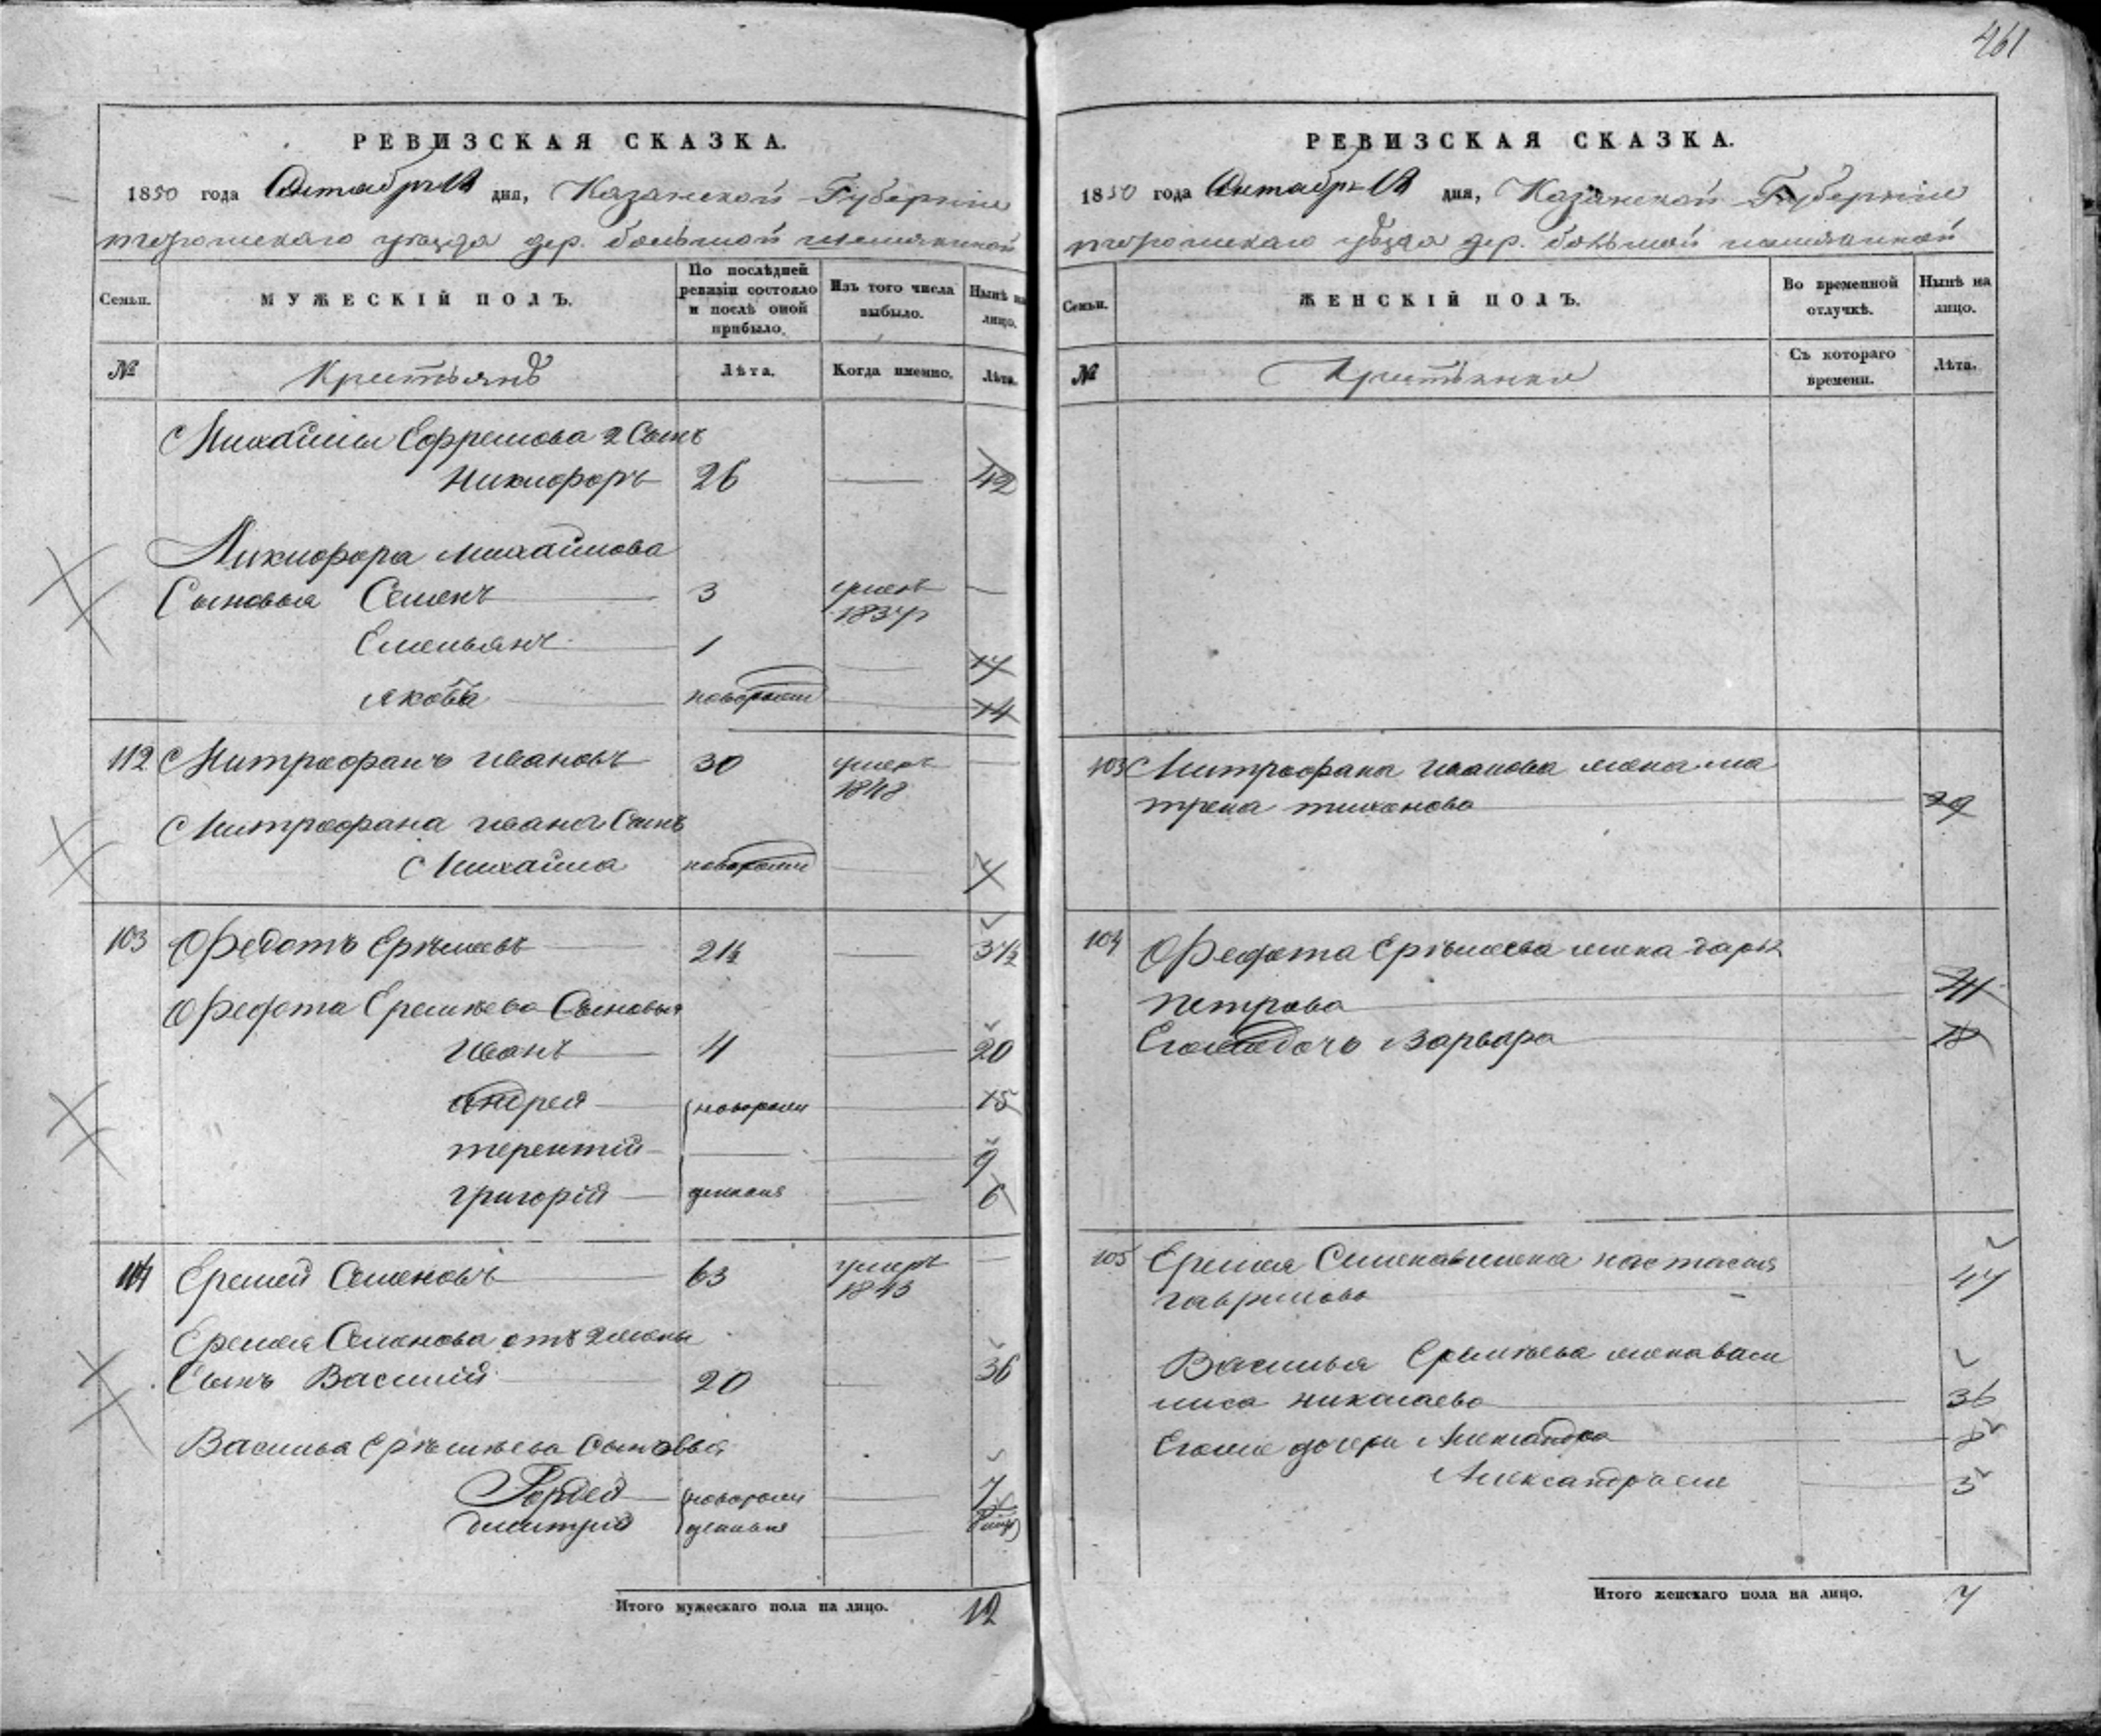 461
РЕВИЗСКАЯ СКАЗКА.
1850 года Октября 12 дня, Казанской Губернии
уезда дер. большой
Семьи.
МУЖЕСКІЙ ПОЛЪ.
По послѣдней ревизіи состояло и послѣ оной прибыло.
Изъ того числа выбыло.
Нынѣ на лицо.
№
Крестьянъ
Лѣта.
Когда именно.
Лѣта.
Михайлы Ефремова 2 Сынъ
Никифоръ 26 — 42
Никифора Михайлова
Сыновья Семенъ 3 умеръ 1837 —
Емельянъ 1 — 17
Яковъ новорожден — 14
112 Митрофанъ Ивановъ 30 умеръ 1848 —
Митрофана Иванова Сынъ
Михайла новорожден —
103 Федотъ Еремеевъ 21½ — 37½
Федота Еремеева Сыновья
Иванъ 4 — 20
Андрей новорожден — 15
Терентій — — 9
Григорій — 6
104 Еремей Семеновъ 63 умеръ 1843 —
Еремея Семенова отъ 2 жены
Сынъ Василій 20 — 36
Василья Еремеева Сыновья
Гордей новорожден — 7
Дмитрій —
Итого мужескаго пола на лицо. 12
РЕВИЗСКАЯ СКАЗКА.
1850 года Октября 12 дня, Казанской Губернии
уезда дер. большой
Семьи.
ЖЕНСКІЙ ПОЛЪ.
Во временной отлучкѣ.
Нынѣ на лицо.
№
Крестьянки
Съ котораго времени.
Лѣта.
103 Митрофана Иванова жена Ма
трена Тихонова 29
104 Федота Еремеева жена Дарья
Петрова
Его дочь Варвара 18
105 Еремея Семенова жена Настасья
Гаврилова 47
Василья Еремеева жена Васи
лиса Николаева 36
Его дочери Александра 8
Александра 3
Итого женскаго пола на лицо. 7